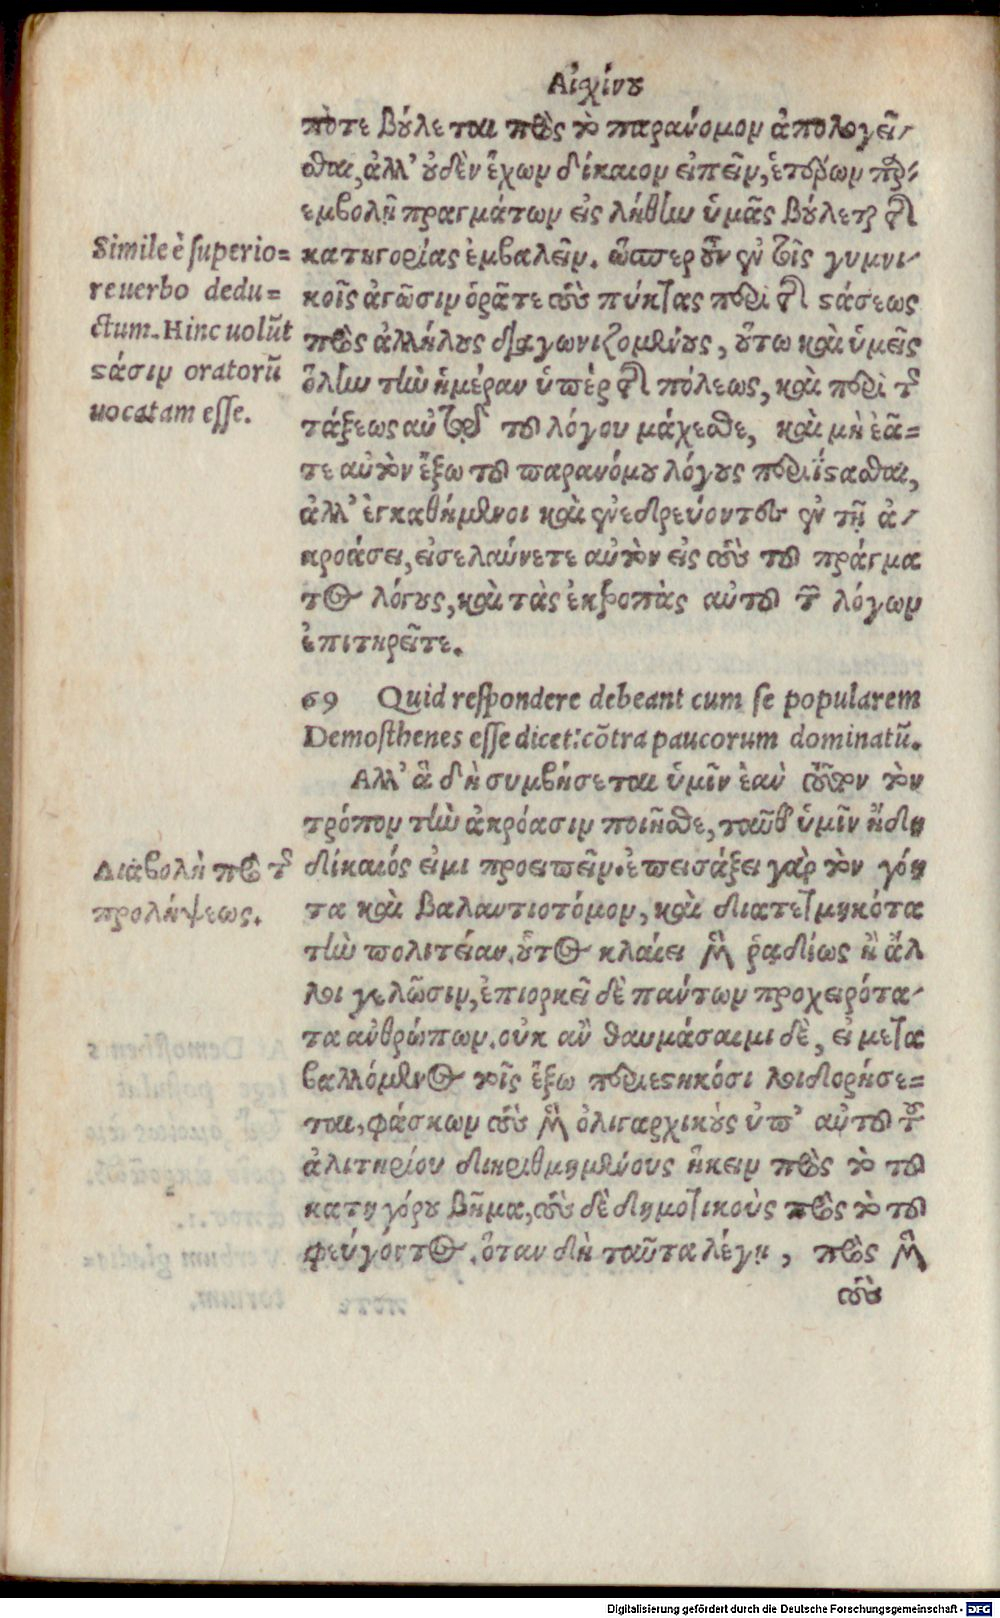 Αἰχίνου
ποτε βούλεται πρὸς τὸ παράνομον ἀπολογεῖ-
σθαι, ἀλλ' οὐδὲν ἔχων δίκαιον εἰπεῖν, ἑτέρων παρ-
εμβολῇ πραγμάτων εἰς λήθην ὑμᾶς βούλεται τῆς
κατηγορίας ἐμβαλεῖν. ὥσπερ οὖν ἐν τοῖς γυμνι-
κοῖς ἀγῶσιν ὁρᾶτε τοὺς πύκτας περὶ τῆς στάσεως
πρὸς ἀλλήλους διαγωνιζομένους, οὕτω καὶ ὑμεῖς
ὅλην τὴν ἡμέραν ὑπὲρ τῆς πόλεως, καὶ περὶ τῆς
τάξεως αὐτῷ τοῦ λόγου μάχεσθε, καὶ μὴ ἐᾶ=
τε αὐτὸν ἔξω τοῦ παρανόμου λόγους περιΐστασθαι,
ἀλλ' ἐγκαθήμενοι καὶ ἐνεδρεύοντες ἐν τῇ ἀ-
κροάσει, εἰσελαύνετε αὐτὸν εἰς τοὺς τοῦ πράγμα
τος λόγους, καὶ τὰς ἐκτροπὰς αὐτοῦ τῶν λόγων
ἐπιτηρεῖτε.
Simile è superio=
re uerbo dedu=
ctum. Hinc uolūt
στάσιν oratorū
uocatam esse.
69 Quid respondere debeant cum se popularem
Demosthenes esse dicet: cōtra paucorum dominatū.
Αλλ' ἃ δὴ συμβήσεται ὑμῖν ἐὰν τοῦτον τὸν
τρόπον τὴν ἀκρόασιν ποιῆσθε, ταῦθ' ὑμῖν ἤδη
δίκαιός εἰμι προειπεῖν. ἐπεισάξει γὰρ τὸν γόη
τα καὶ βαλαντιοτόμον, καὶ διατετμηκότα
τὴν πολιτείαν. οὗτος κλάιει μὲν ῥᾳδίως ἢ ἄλ
λοι γελῶσιν, ἐπιορκεῖ δὲ πάντων προχειρότα-
τα ἀνθρώπων. οὐκ ἂν θαυμάσαιμι δὲ, εἰ μετα
βαλλόμενος τοῖς ἔξω περιεστηκόσι λοιδορήσε=
ται, φάσκων τοὺς μὲν ὀλιγαρχικοὺς ὑπ' αὐτοῦ τῆς
ἀλιτηρίου διηριθμημένους ἥκειν πρὸς τὸ τοῦ
κατηγόρου βῆμα, τοὺς δὲ δημοτικοὺς πρὸς τὸ τοῦ
φεύγόντος. ὅταν δὴ ταῦτα λέγῃ, πρὸς μὲν
Διαβολὴ πρὸ τῆς
προλήψεως.
τοὺς
Digitalisierung gefördert durch die Deutsche Forschungsgemeinschaft - DFG